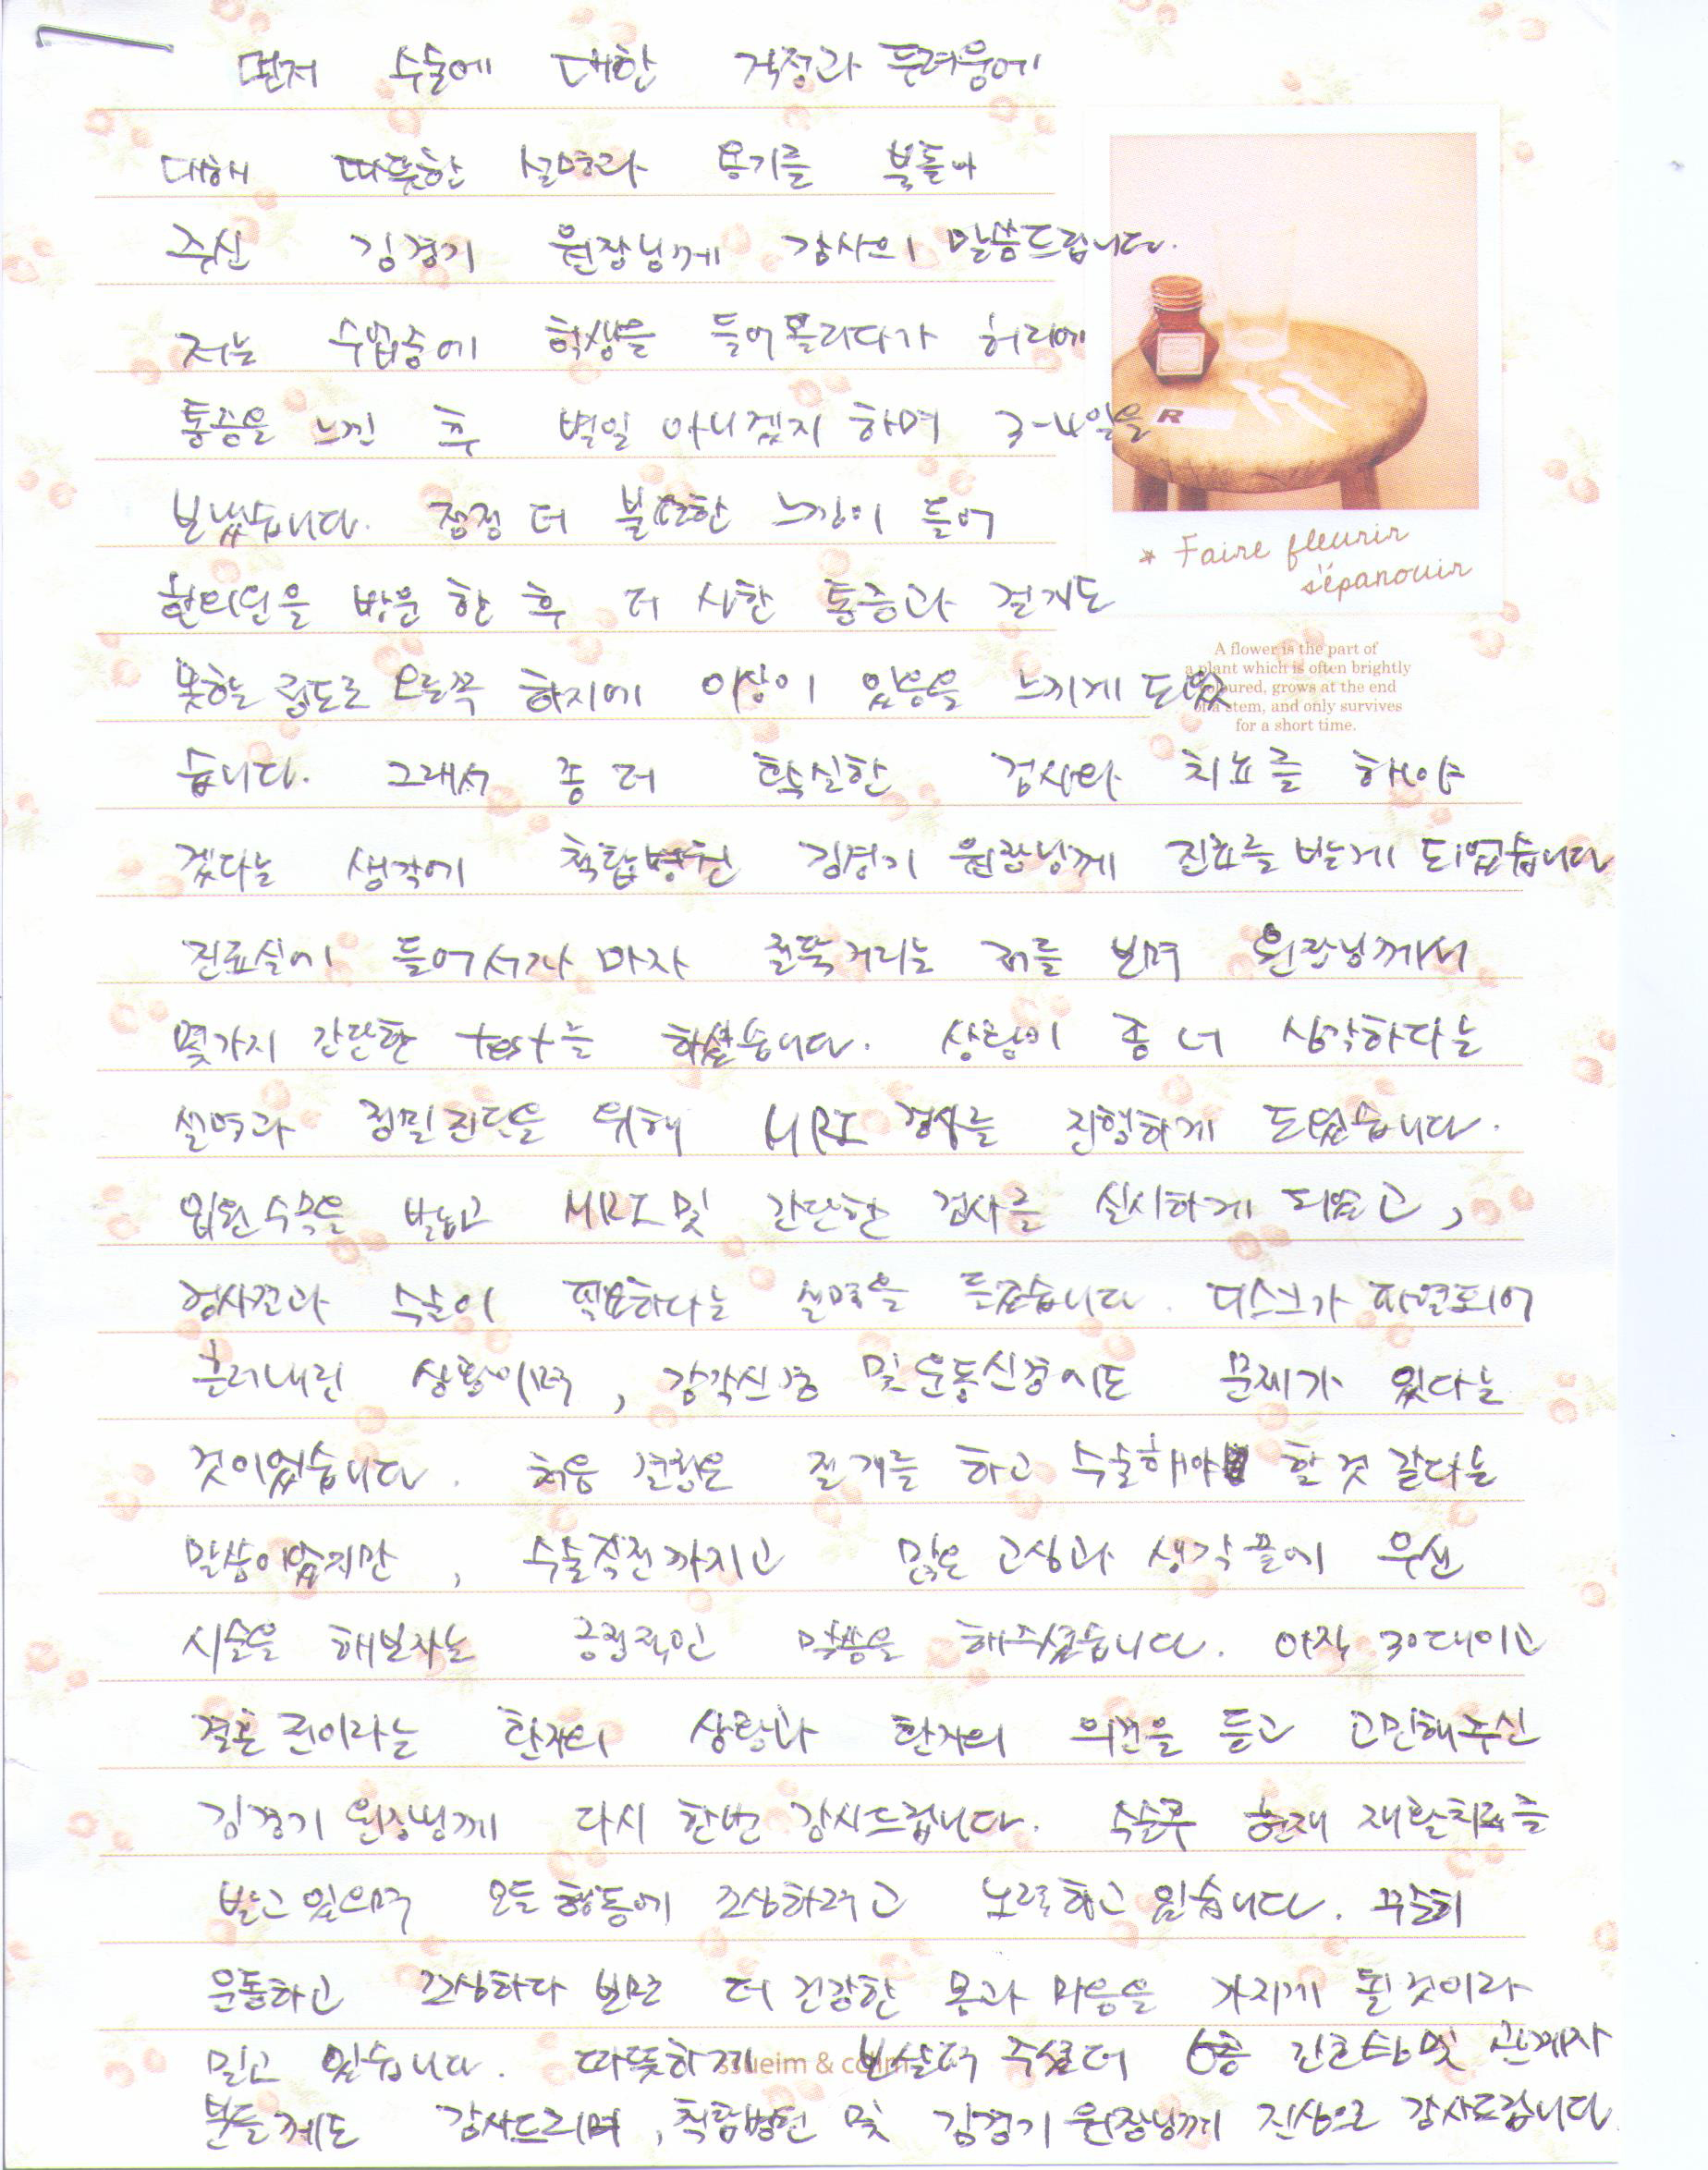 먼저 수술에 대한 걱정과 두려움에
대해 따뜻한 설명과 용기를 북돋아
주신 김경기 원장님께 감사의 말씀드립니다.
저는 수업중에 학생을 들어올리다가 허리에
통증을 느낀 후 별일 아니겠지 하며 3-4일을
보냈습니다. 점점 더 불편한 느낌이 들어
한의원을 방문 한 후 더 심한 통증과 걷기도
못하는 정도로 오른쪽 하지에 이상이 있음을 느끼게 되었
습니다. 그래서 좀 더 확실한 검사와 치료를 해야
겠다는 생각에 척탑병원 김경기 원장님께 진료를 받게 되었습니다
진료실에 들어서자 마자 절뚝거리는 저를 보며 원장님께서
몇가지 간단한 test를 하셨습니다. 상황이 좀 더 심각하다는
설명과 정밀진단을 위해 MRI 검사를 진행하게 되었습니다.
입원수속을 밟고 MRI 및 간단한 검사를 실시하게 되었고,
검사결과 수술이 필요하다는 설명을 들었습니다. 디스크가 파열되어
흘러내린 상황이며, 감각신경 및 운동신경에도 문제가 있다는
것이었습니다. 처음 결정은 절개를 하고 수술해야 할 것 같다는
말씀이었지만, 수술직전까지고 많은 고심과 생각 끝에 우선
시술을 해보자는 긍정적인 말씀을 해주셨습니다. 아직 30대이고
결혼 전이라는 환자의 상황과 환자의 의견을 듣고 고민해주신
김경기 원장님께 다시 한번 감사드립니다. 수술후 현재 재활치료를
받고 있으며 모든 행동에 조심하려고 노력하고 있습니다. 꾸준히
운동하고 조심하다 보면 더 건강한 몸과 마음을 가지게 될 것이라
믿고 있습니다. 따뜻하게 보살펴 주셨던 6층 간호사 및 관계자
분들께도 감사드리며, 척탑병원 및 김경기 원장님께 진심으로 감사드립니다.
R
* Faire fleurir
s'épanouir
A flower is the part of
a plant which is often brightly
coloured, grows at the end
of a stem, and only survives
for a short time.